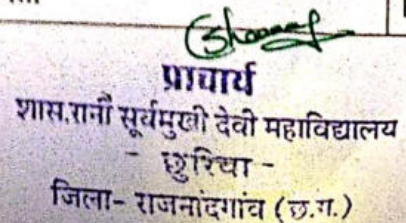 प्राचार्य
शास.रानी सूर्यमुखी देवी महाविद्यालय
- छुरिया -
जिला- राजनांदगांव (छ.ग.)